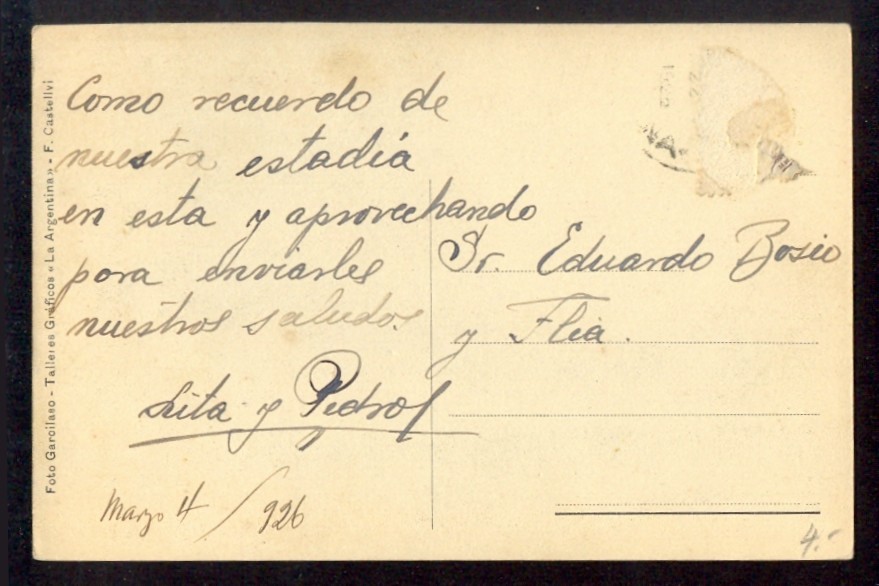 Como recuerdo de
nuestra estadía
en esta y aprovechando
para enviarles
nuestros saludos
Lita y Pedro
Marzo 4 / 926
Sr. Eduardo Bosio
y Flia.
Foto Garcilaso - Talleres Gráficos «La Argentina» - F. Castellvi
4.-